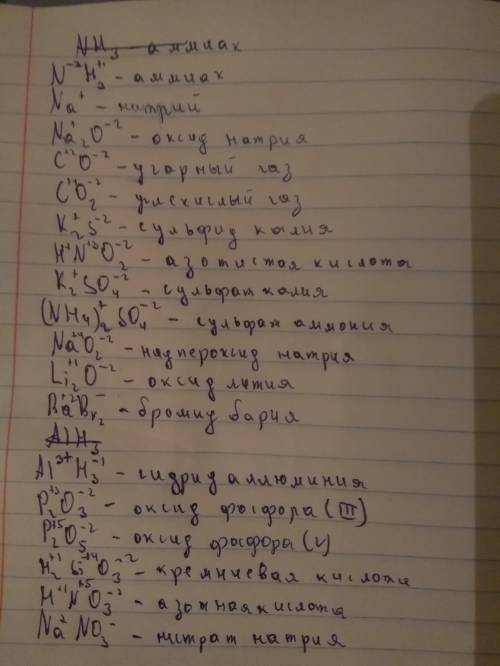 NH₃ - аммиак
N⁻³H₃⁺¹ - аммиак
Na⁺ - натрий
Na⁺₂O⁻² - оксид натрия
C⁺²O⁻² - угарный газ
C⁺⁴O₂⁻² - углекислый газ
K₂⁺S⁻² - сульфид калия
H⁺N⁺³O₂⁻² - азотистая кислота
K₂⁺SO₄⁻² - сульфат калия
(NH₄)₂⁺SO₄⁻² - сульфат аммония
Na⁺⁴O₂⁻² - надпероксид натрия
Li₂⁺¹O⁻² - оксид лития
Ba⁺²Br₂⁻ - бромид бария
AlH₃
Al³⁺H₃⁻¹ - гидрид аллюминия
P₂⁺³O₃⁻² - оксид фосфора (III)
P₂⁺⁵O₅⁻² - оксид фосфора (V)
H₂⁺¹Si⁺⁴O₃⁻² - кремниевая кислота
H⁺¹N⁺⁵O₃⁻² - азотная кислота
Na⁺NO₃⁻ - нитрат натрия